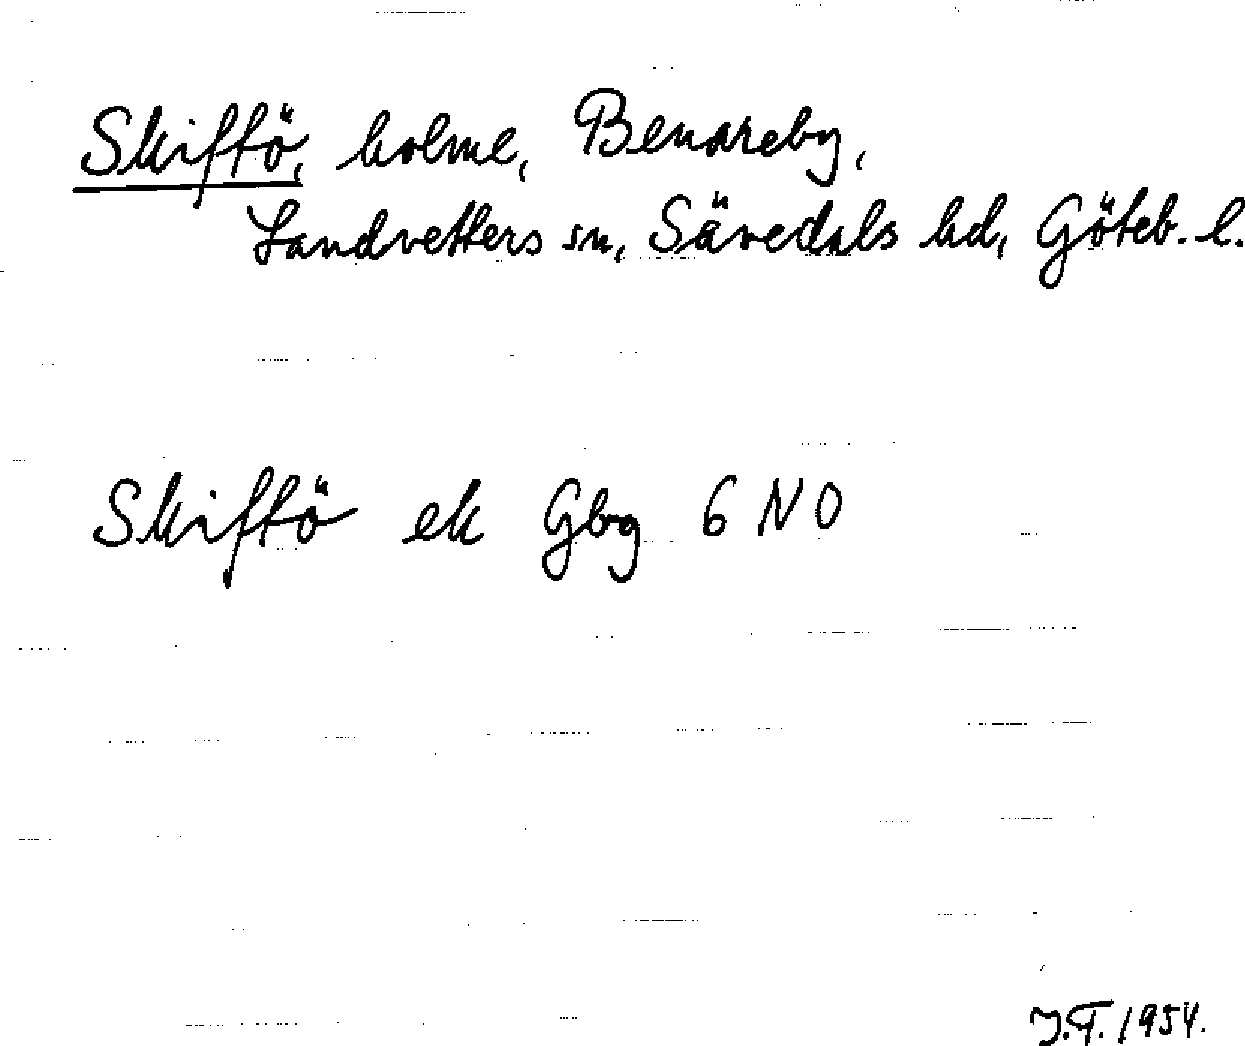 Skiffö, holme, Benareby,
Landvetters sn, Sävedals hd, Göteb. l.
Skiffö ek Gbg 6 NO
J.T. 1954.